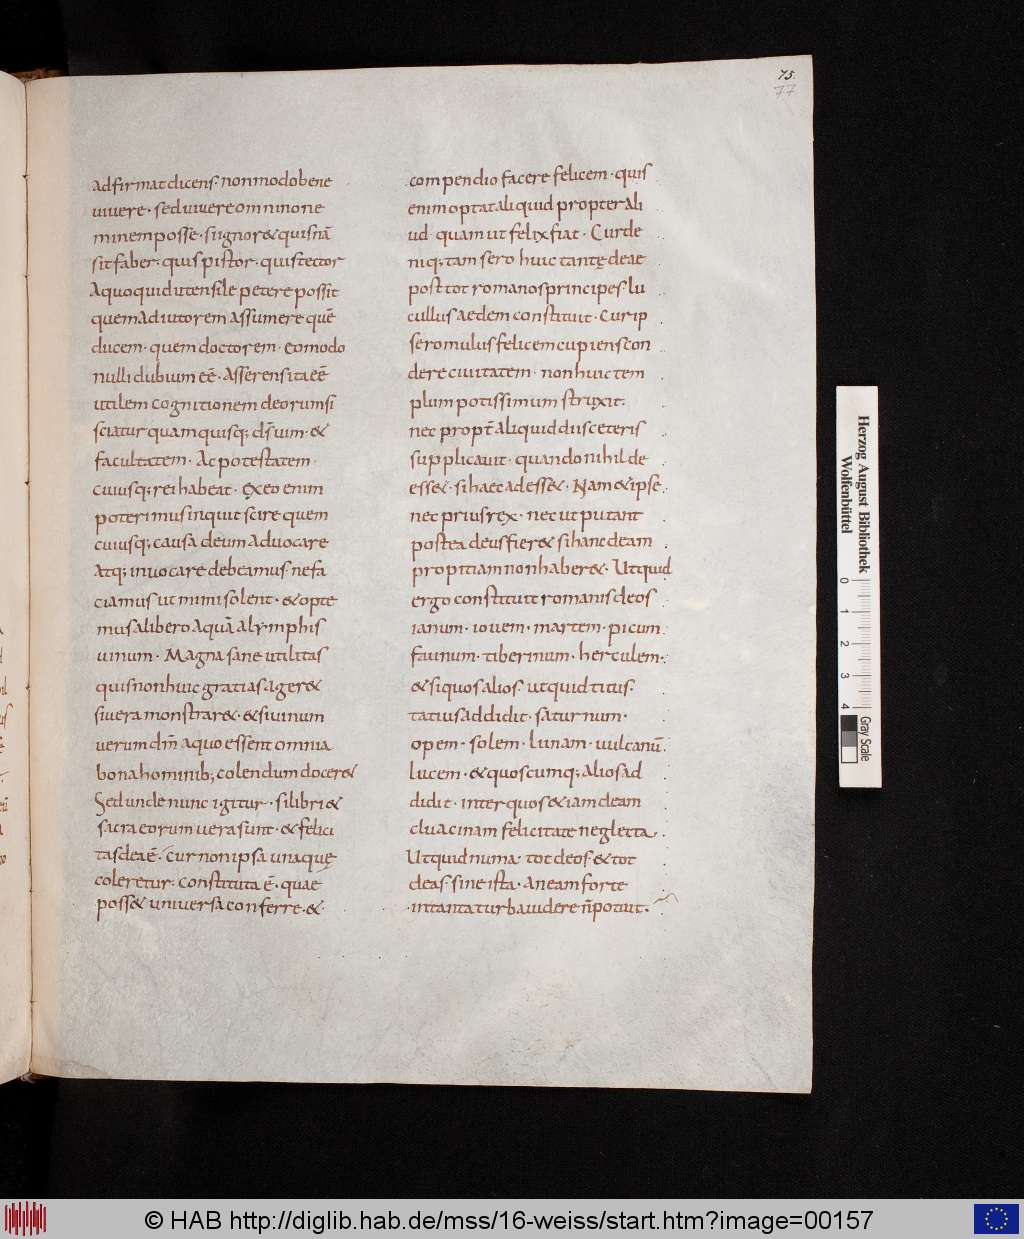 75.
77
adfirmat dicens. non modo bene
vivere. sed vivere omnino ne
minem posse. si ignor& quisnā
sit faber. quis pistor. quis tector
A quo quid utensile petere possit
quem adiutorem assumere quē
ducem. quem doctorem. eo modo
nulli dubium eē. Asserens ita eē
utilem cognitionem deorum si
sciatur quam quisq; ds̄ vim. &
facultatem. Ac potestatem.
cuiusq; rei habeat. Ex eo enim
poterimus inquit scire quem
cuiusq; causa deum advocare
atq; invocare debeamus ne fa
ciamus ut mimi solent. & opte
mus a libero aquā a lymphis
vinum. Magna sane utilitas
quis non huic gratias ager&
si vera monstrar&. & si unum
verum dm̄ a quo essent omnia
bona hominib; colendum docer&
Sed unde nunc igitur. si libri &
sacra eorum vera sunt. & felici
tas dea ē. Cur non ipsa una quę
coleretur. constituta ē. quae
poss& universa conferre. &
compendio facere felicem. quis
enim optat aliquid propter ali
ud. quam ut felix fiat. Cur de
niq; tam sero huic tantę deae
post tot romanos principes lu
cullus aedem constituit. Cur ip
se romulus felicem cupiens con
dere civitatem. non huic tem
plum potissimum struxit.
nec propt̄ aliquid diis ceteris
supplicavit. quando nihil de
ess&. si haec adess&. Nam & ipse
nec prius rex. nec ut putant
postea deus fier& si hanc deam
propitiam non haber&. Ut quid
ergo constituit romanis deos
ianum. iovem. martem. picum
faunum. tiberinum. herculem.
& si quos alios. ut quid titus
tatius addidit. saturnum.
opem. solem. lunam. vulcanū.
lucem. & quoscumq; alios ad
didit. inter quos & iam deam
cluacinam felicitate neglecta.
Ut quid numa tot deos & tot
deas. sine ista. An eam forte
in tanta turba videre n̄ potuit.
Herzog August Bibliothek
Wolfenbüttel
0 1 2 3 4
Gray Scale
© HAB http://diglib.hab.de/mss/16-weiss/start.htm?image=00157